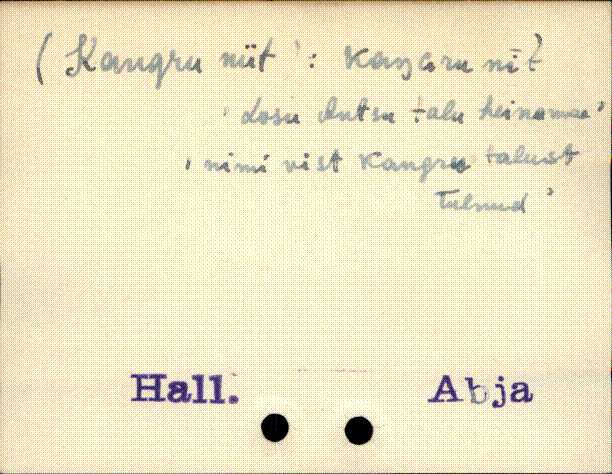 (Kangru niit : kaŋGru nīt)
' Losu Antsu talu heinamaa '
, nimi vist Kangru talust
tulnud '
Hall. Abja